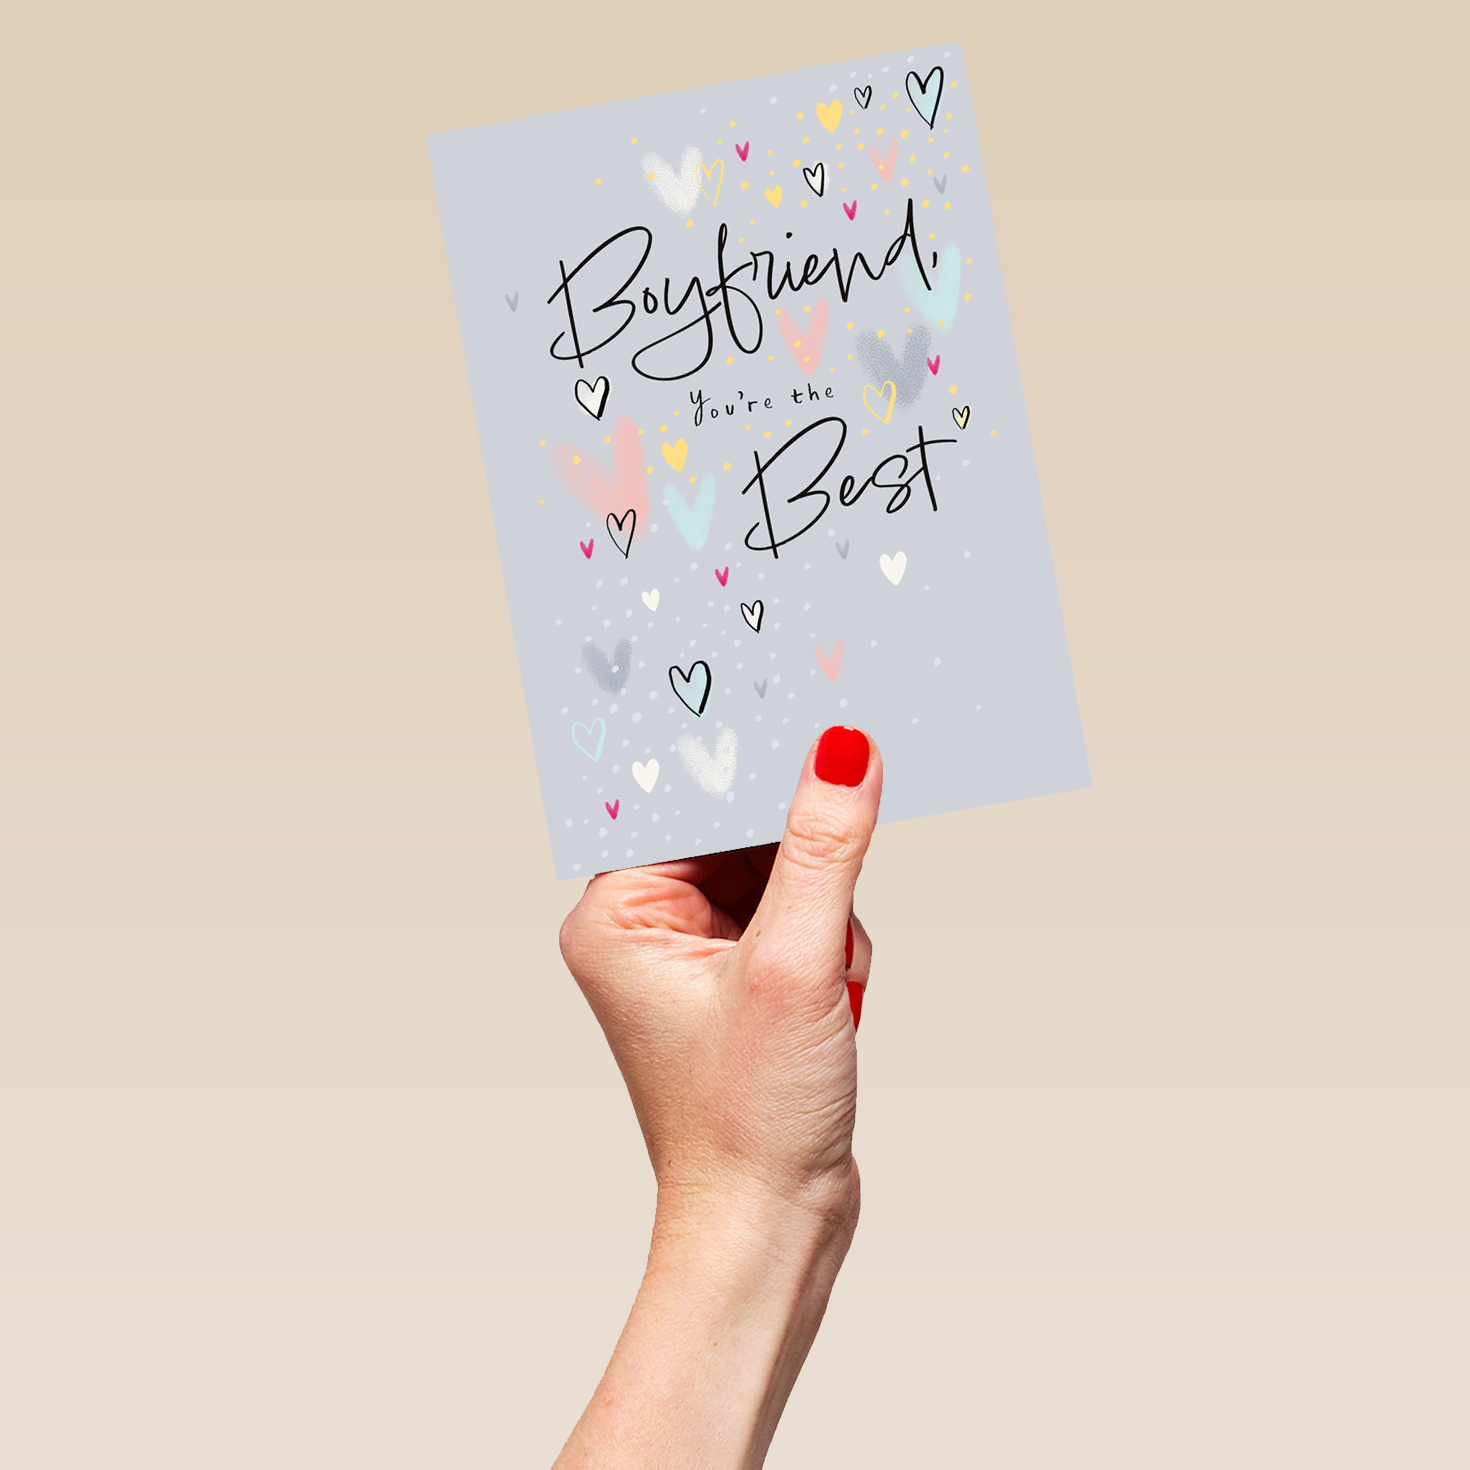 Boyfriend,
you're the
Best